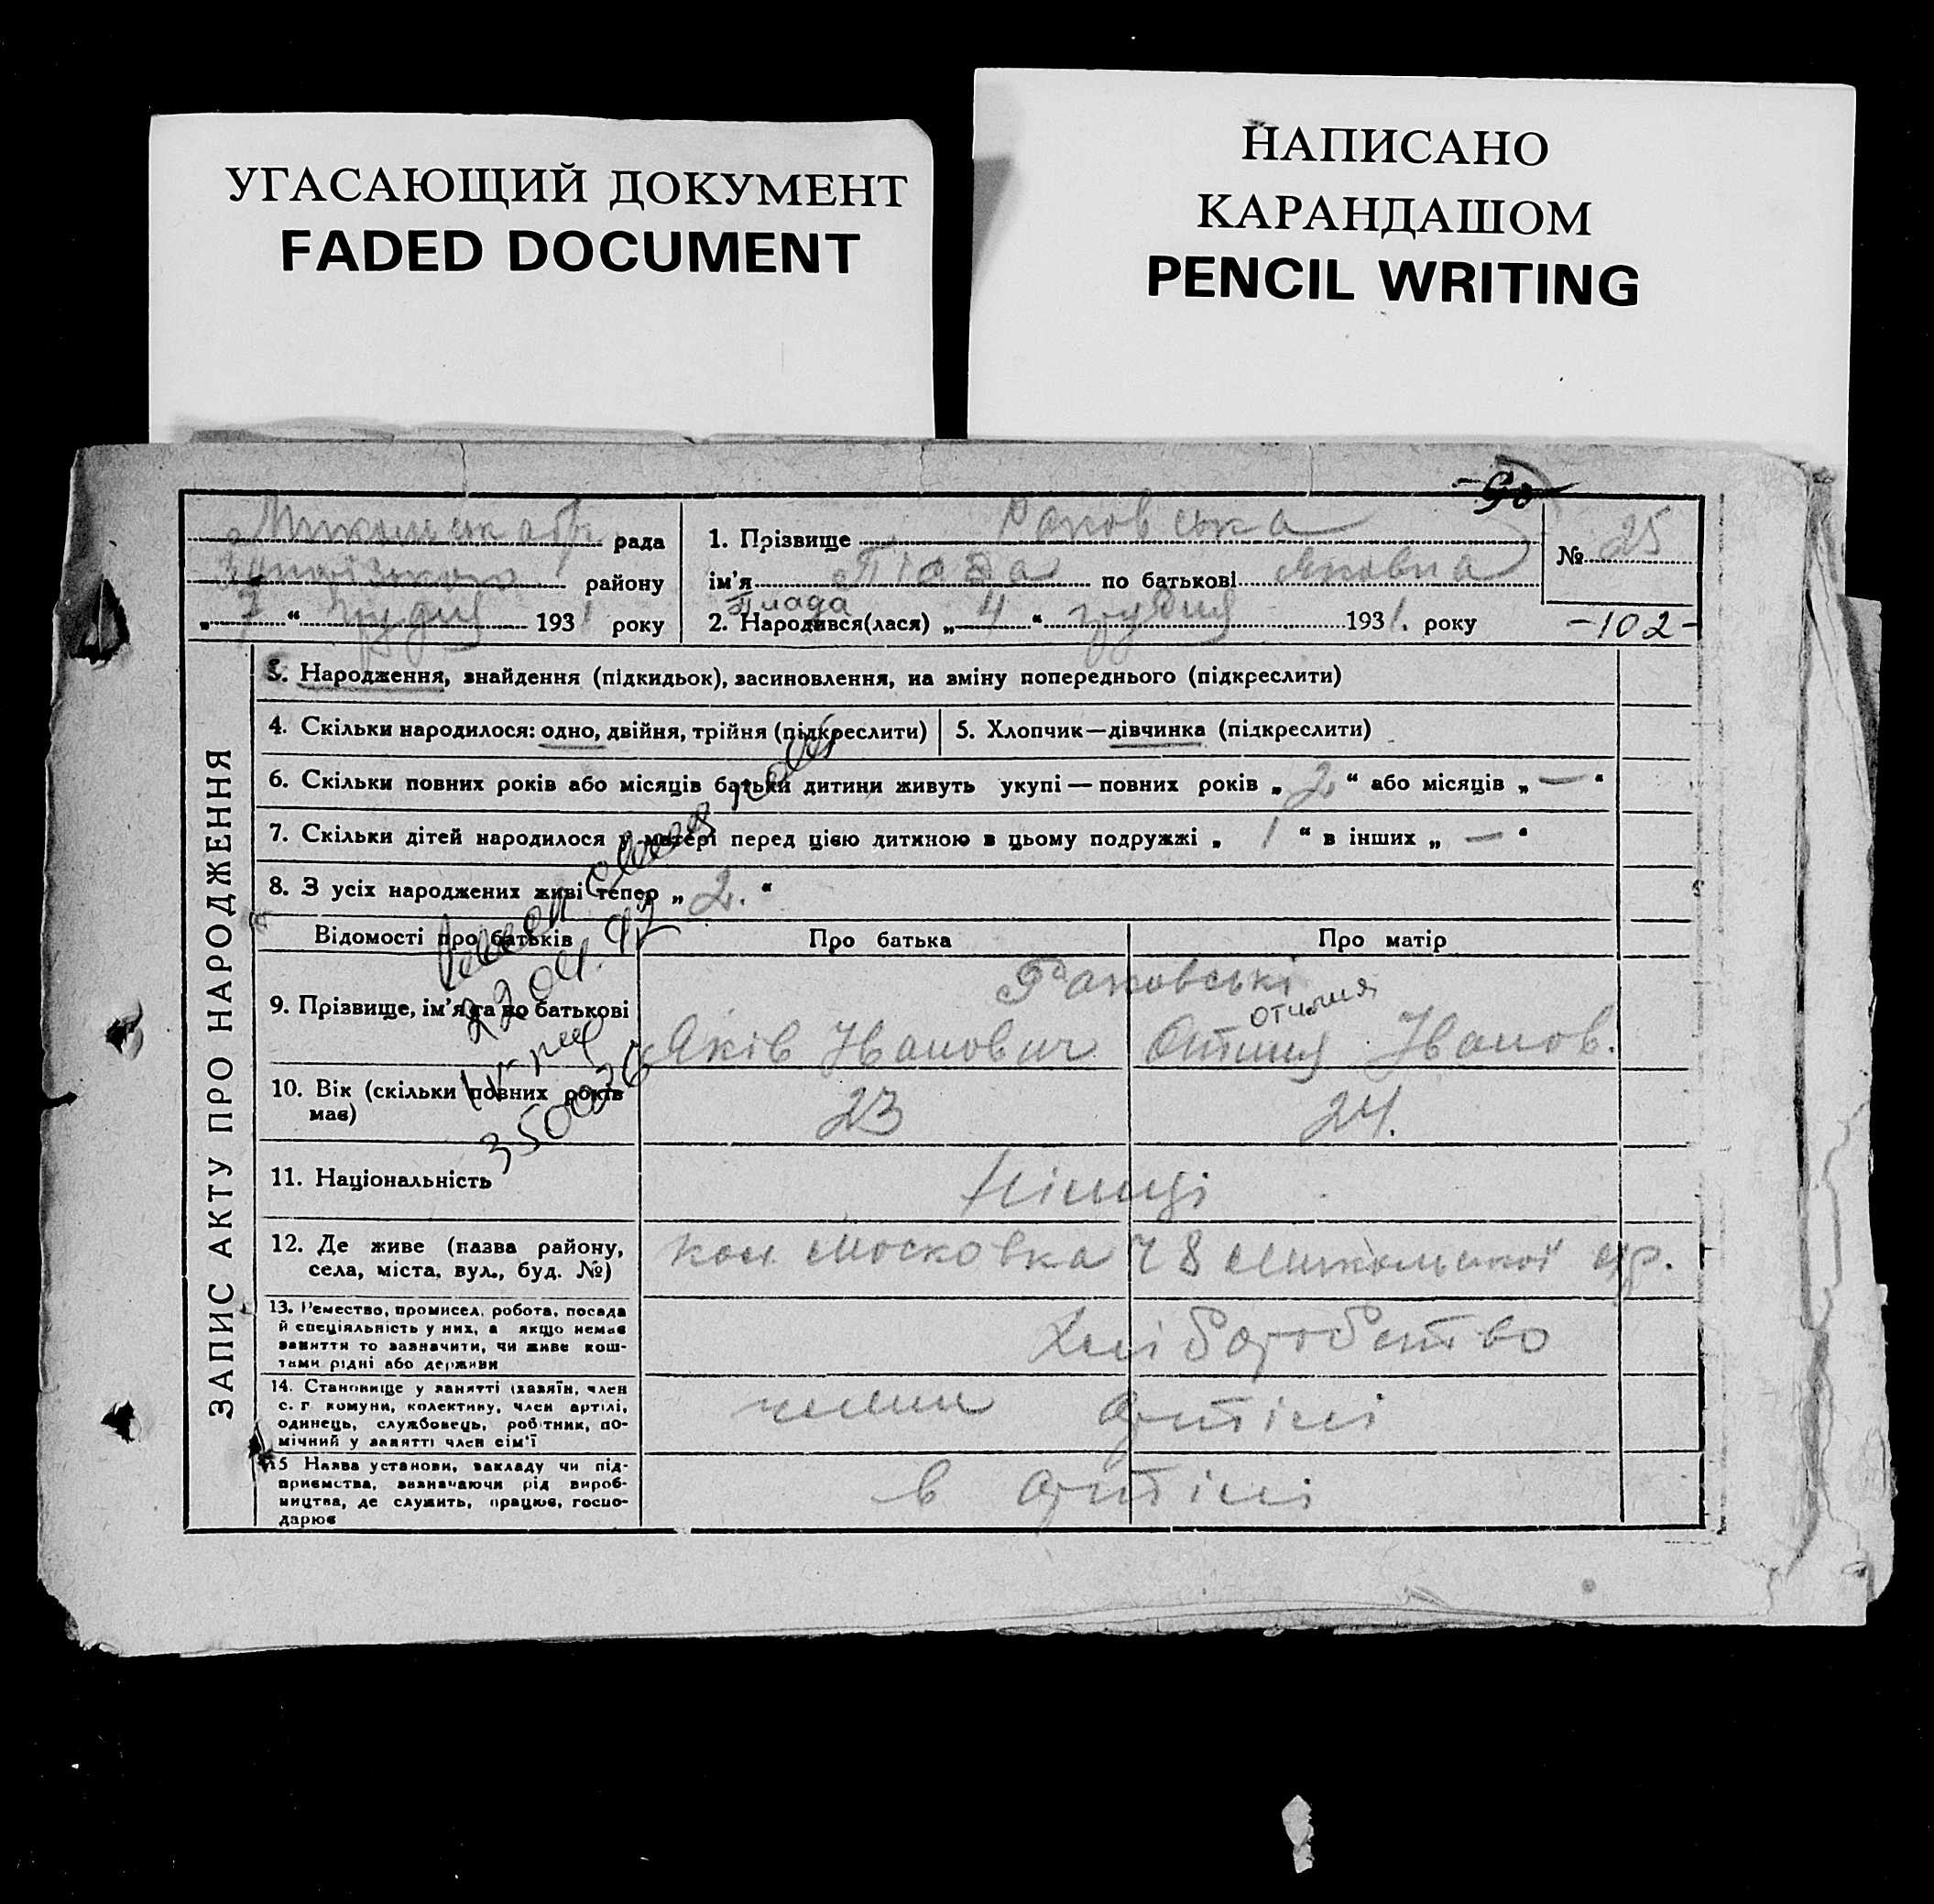 УГАСАЮЩИЙ ДОКУМЕНТ
FADED DOCUMENT
НАПИСАНО
КАРАНДАШОМ
PENCIL WRITING
90
рада
району
„ 7 “ грудня 1931 року
1. Прізвище Раковська
ім'я по батькові Яковна
2. Народився(лася) „ 4 “ грудня 1931. року
№ 25
-102-
ЗАПИС АКТУ ПРО НАРОДЖЕННЯ
3. Народження, знайдення (підкидьок), засиновлення, на зміну попереднього (підкреслити)
4. Скільки народилося: одно, двійня, трійня (підкреслити)
5. Хлопчик—дівчинка (підкреслити)
6. Скільки повних років або місяців батьки дитини живуть укупі — повних років „ 2 “ або місяців „ — “
7. Скільки дітей народилося у матері перед цією дитиною в цьому подружжі „ 1 “ в інших „ — “
8. З усіх народжених живі тепер „ 2. “
Відомості про батьків
Про батька
Про матір
22 04. 92
350026
9. Прізвище, ім'я та по батькові
Раковські
Яків Іванович
Отилия
Іванов.
10. Вік (скільки повних років має)
23
24.
11. Національність
німці
12. Де живе (назва району,
села, міста, вул., буд. №)
кол. Московка 78 Микольської с/р.
13. Ремество, промисел, робота, посада
й спеціяльність у них, а якщо немає
заняття то зазначити, чи живе кош-
тами рідні або держави
Хліборобство
14. Становище у занятті (хазяїн, член
с. г комуни, колективу, член артілі,
одинець, службовець, робітник, по-
мічний у занятті член сім'ї
члени артілі
15 Назва установи, закладу чи під-
приємства, зазначаючи рід вироб-
ництва, де служить, працює, госпо-
дарює
в артілі